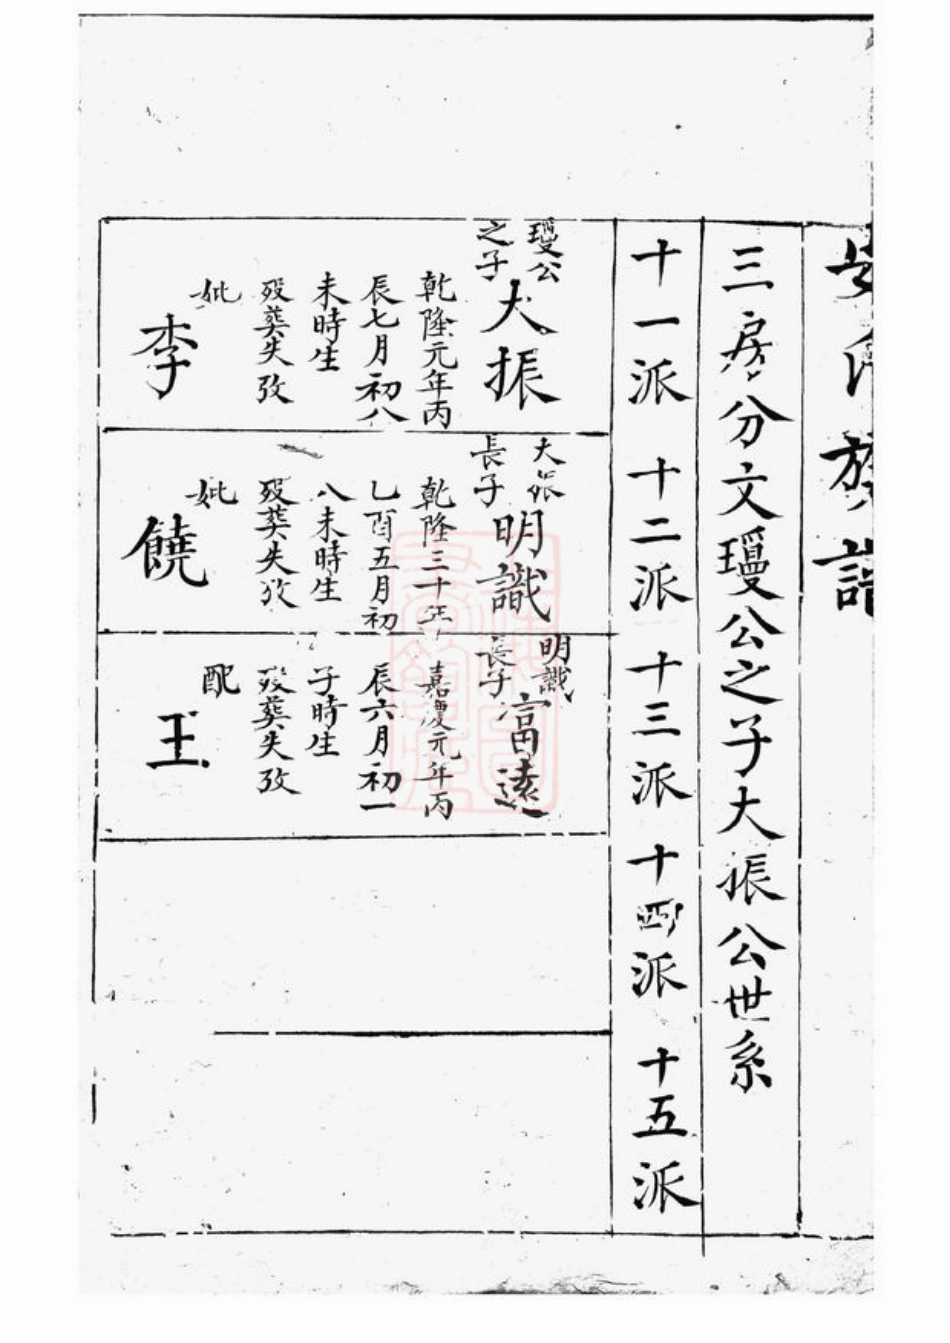 氏族譜
三房分文瓊公之子大振公世系
十一派 十二派 十三派 十四派 十五派
瓊公
之子
大振
乾隆元年丙
辰七月初八
未時生
殁葬失攷
妣
李
大振
長子
明識
乾隆三十年
乙酉五月初
八未時生
殁葬失攷
妣
饒
明識
長子
富遠
嘉慶元年丙
辰六月初一
子時生
殁葬失攷
配
王